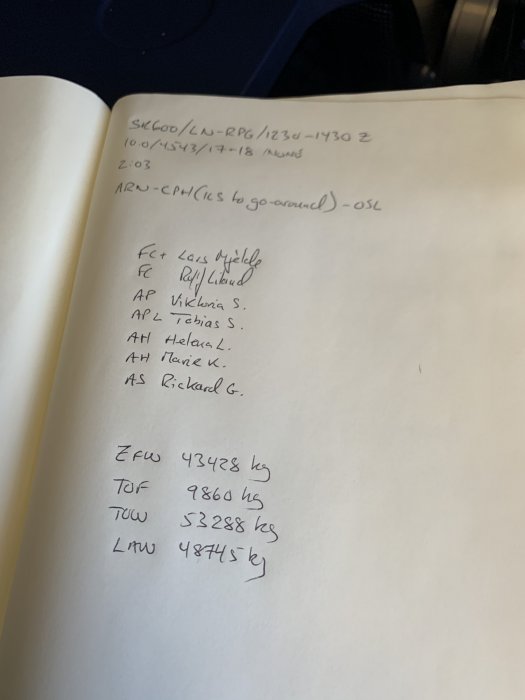 SK600/LN-RPG/1230-1430 Z
10.0/4543/17-18
2:03
ARN-CPH (ILS to go-around) - OSL
FC+ Lars
FC
AP Viktoria S.
APL Tobias S.
AH Helena L.
AH Marie K.
AS Rickard G.
ZFW 43428 kg
TOF 9860 kg
TOW 53288 kg
LAW 48745 kg